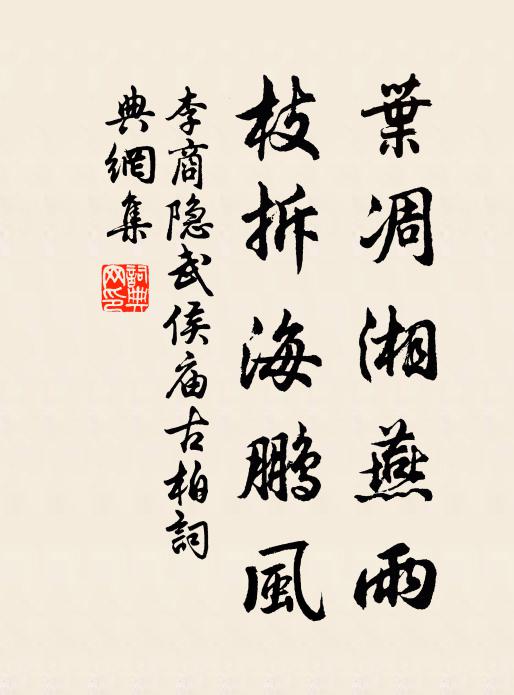 葉凋湘燕雨
枝拆海鵬風
李商隐武侯庙古柏詞
典網集
詞典
网印